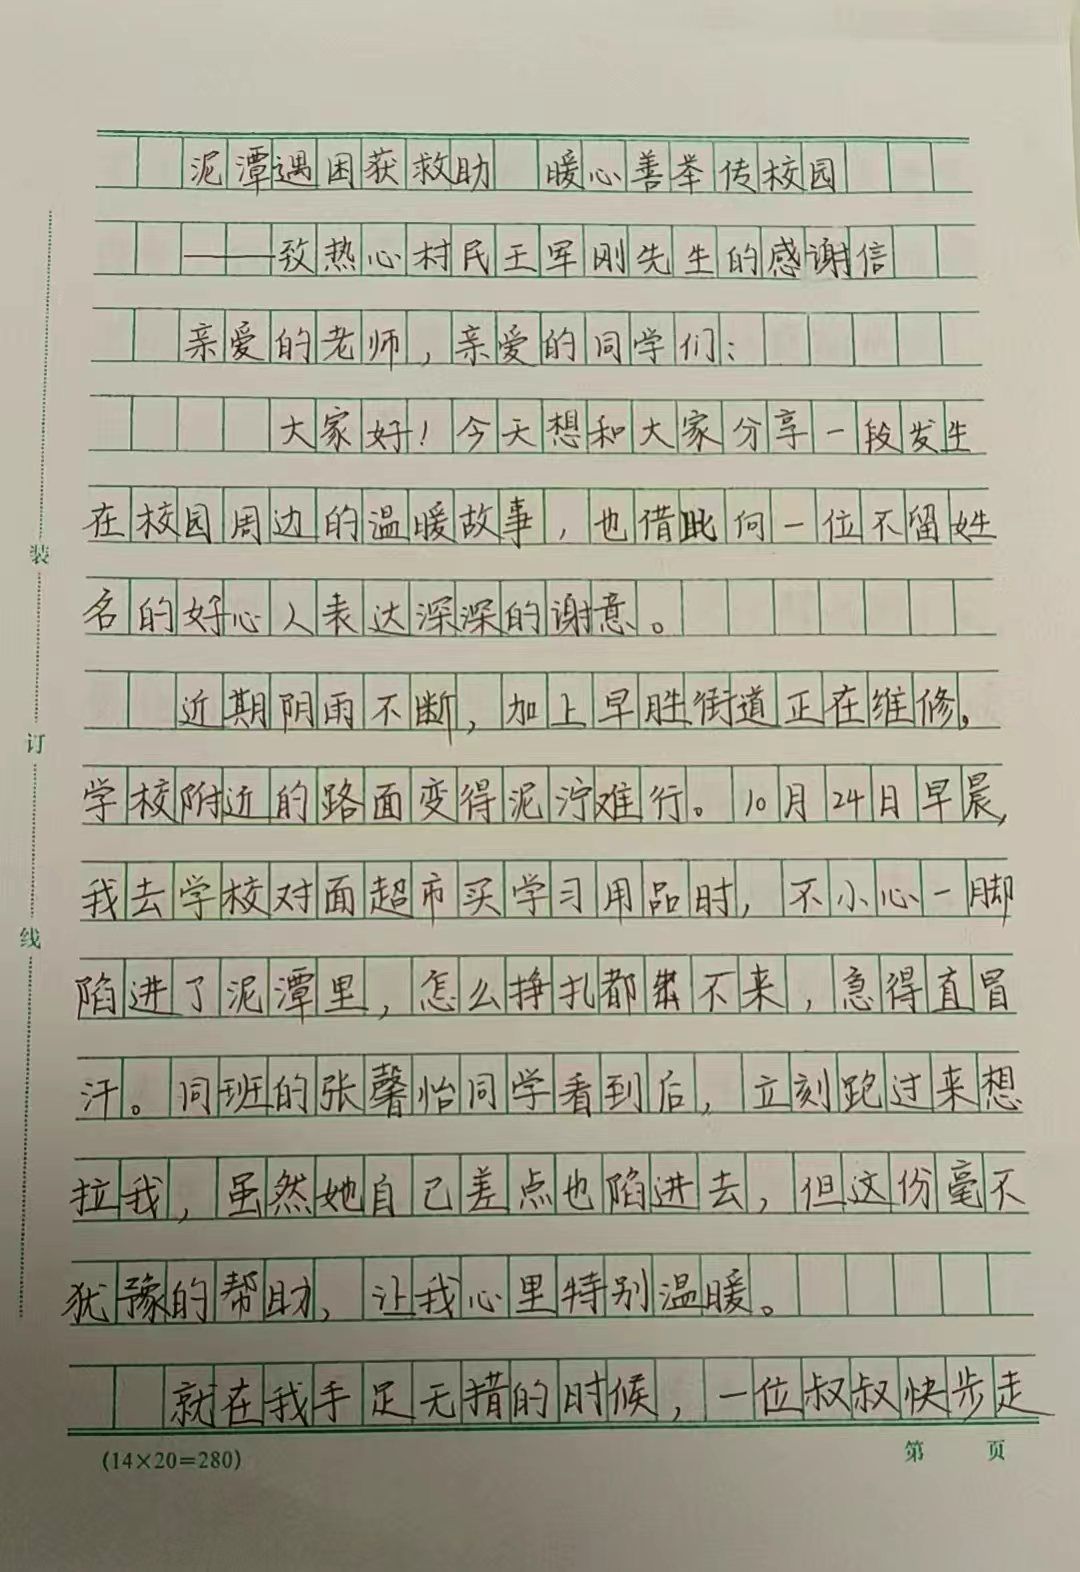 泥潭遇困获救助 暖心善举传校园
——致热心村民王军刚先生的感谢信
亲爱的老师，亲爱的同学们：
大家好！今天想和大家分享一段发生
在校园周边的温暖故事，也借此向一位不留姓
名的好心人表达深深的谢意。
近期阴雨不断，加上早胜街道正在维修，
学校附近的路面变得泥泞难行。10月24日早晨，
我去学校对面超市买学习用品时，不小心一脚
陷进了泥潭里，怎么挣扎都出不来，急得直冒
汗。同班的张馨怡同学看到后，立刻跑过来想
拉我，虽然她自己差点也陷进去，但这份毫不
犹豫的帮助，让我心里特别温暖。
就在我手足无措的时候，一位叔叔快步走
(14×20=280)
第 页
装
订
线